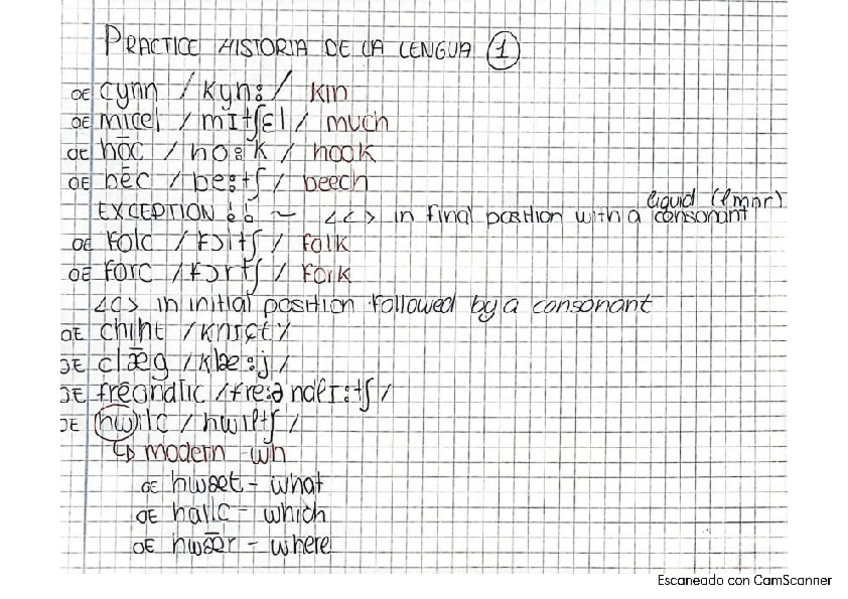 PRACTICE HISTORIA DE LA LENGUA 1
OE cynn / kyn: / kin
OE micel / mɪtʃɛl / much
OE hōc / ho:k / hook
OE bēc / be:tʃ / beech
EXCEPTION ¿¿ ~ <c> in final position with a liquid (lmnr) consonant
OE folc / fɔltʃ / folk
OE forc / fɔrtʃ / fork
<c> in initial position followed by a consonant
OE cniht /knɪçt/
OE clǣg /klæ:j/
OE frēondlīc /fre:əndlɪ:tʃ/
OE hwilc /hwɪltʃ/
↳ modern -wh
OE hwæt - what
OE hwilc - which
OE hwǣr - where
Escaneado con CamScanner